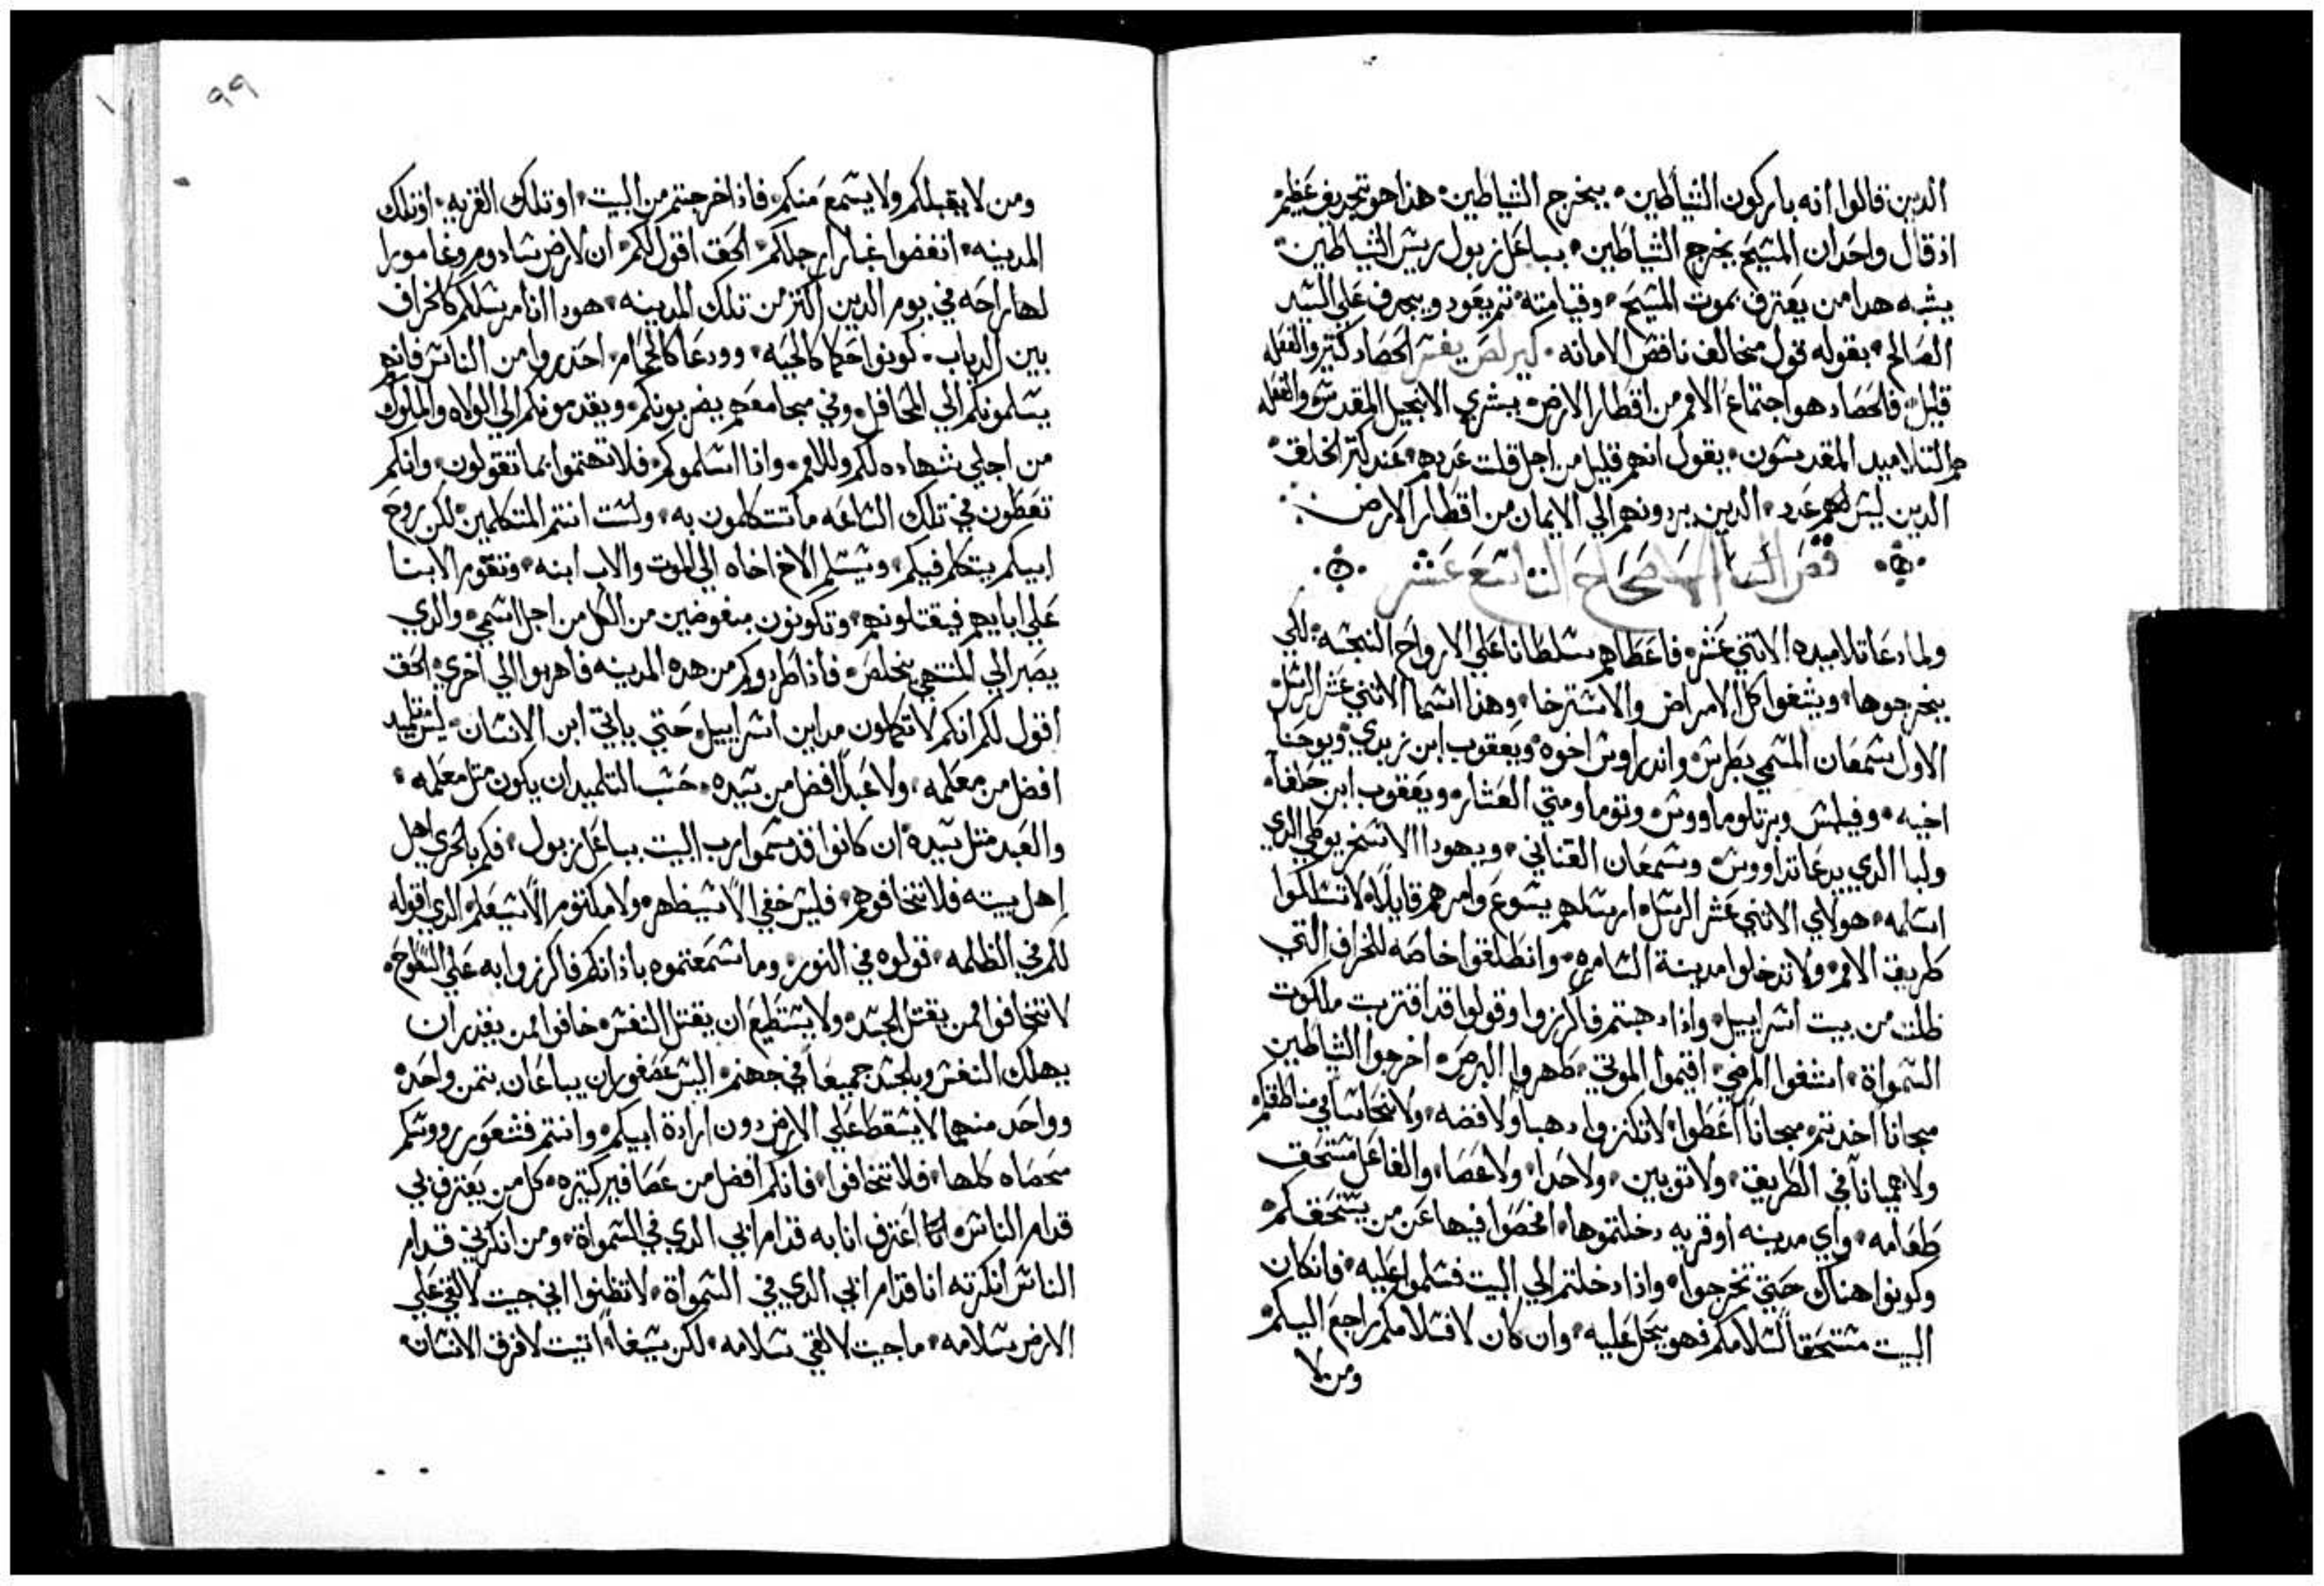 الدين قالوا انه باركون الشياطين بيخرج الشياطين هذا هو تجديف عظيم
اذ قال واحد ان المسيح يخرج الشياطين بباعل زبول ريس الشياطين
يشبه هدا من يعترف بموت المسيح وقيامته تم يعود ويجدف علي السيد
الصالح بقوله قول مخالف ناقض الامانه الحصاد كتير والفعله
قليل فالحصاد هو اجتماع الامم من اقطار الارض ببشري الانجيل المقدس والفعله
هم التلاميد المقدسون يقول انهم قليل من اجل قلت عددهم عند كتر الخلق
الدين ليس لهم عدد الدين يردونهم الي الايمان من اقطار الارض
الاصحاح التاسع عشر
ولما دعا تلاميده الاتني عشر فاعطاهم سلطانا علي الارواح النجسه لكي
يخرجوها ويشفوا كل الامراض والاسترخا وهذا اسما الاتني عشر الرسل
الاول سمعان المسمي بطرس واندراوس اخوه ويعقوب ابن زبدي ويوحنا
اخيه وفيلبس وبرتلوماووس وتوما ومتي العشار ويعقوب ابن حلفا
ولبا الدي يدعا تداووس وسمعان القناني ويهودا الاسخريوطي الدي
اسلمه هولاي الاتني عشر الرسل ارسلهم يسوع وامرهم قايلا لا تسلكوا
طريق الامم ولا تدخلوا مدينة السامره وانطلقوا خاصه للخراف التي
ظلت من بيت اسراييل وادا دهبتم فاكرزوا وقولوا قد اقتربت ملكوت
السمواة اشفوا المرضي اقيموا الموتي طهروا البرص اخرجوا الشياطين
مجانا اخدتم مجانا اعطوا لا تكنزوا دهبا ولا فضه ولا نحاسا في مناطقكم
ولا هميانا في الطريق ولا توبين ولا حدا ولا عصا والفاعل مستحق
طعامه واي مدينه او قريه دخلتموها افحصوا فيها عن من يستحقكم
وكونوا هناك حتي تخرجوا وادا دخلتم الي البيت فسلموا عليه فان كان
البيت مستحقا لسلامكم فهو يحل عليه وان كان لا فسلامكم راجع اليكم
ومن لا
٩٩
ومن لا يقبلكم ولا يسمع منكم فاذا خرجتم من البيت او تلك القريه او تلك
المدينه انفضوا غبار ارجلكم الحق اقول لكم ان لارض سادوم وغامورا
لها راحه في يوم الدين اكتر من تلك المدينه هودا انا مرسلكم كالخراف
بين الدياب كونوا حكما كالحيه وودعا كالحمام احدروا من الناس فانهم
يسلمونكم الي المحافل وفي مجامعهم يضربونكم ويقدمونكم الي الولاه والملوك
من اجلي شهاده لكم وللامم وادا اسلموكم فلا تهتموا بما تقولون وانكم
تعطون في تلك الساعه ما تتكلمون به ولست انتم المتكلمين لكن روح
ابيكم يتكلم فيكم ويسلم الاخ اخاه الي الموت والاب ابنه وتقوم الابنا
علي ابايهم فيقتلونهم وتكونون مبغوضين من الكل من اجل اسمي والدي
يصبر الي المنتهي يخلص فاذا طردوكم من هده المدينه فاهربوا الي اخري الحق
اقول لكم انكم لا تكملون مداين اسراييل حتي ياتي ابن الانسان ليس تلميد
افضل من معلمه ولا عبدا افضل من سيده حسب التلميد ان يكون متل معلمه
والعبد متل سيده ان كانوا قد سموا رب البيت بباعل زبول فكم بالحري اهل
اهل بيته فلا تخافوهم فليس خفي الا سيظهر ولا مكتوم الا سيعلم الدي اقوله
لكم في الظلمه قولوه في النور وما سمعتموه باذانكم فاكرزوا به علي السطوح
لا تخافوا ممن يقتل الجسد ولا يستطيع ان يقتل النفس خافوا ممن يقدر ان
يهلك النفس والجسد جميعا في جهنم اليس عصفوران يباعان بتمن واحد
وواحد منهما لا يسقط علي الارض دون ارادة ابيكم وانتم فشعور رووسكم
محصاه كلها فلا تخافوا فانكم افضل من عصافير كتيره كل من يعترف بي
قدام الناس انا اعترف انا به قدام ابي الدي في السمواة ومن انكرني قدام
الناس انكرته انا قدام ابي الدي في السمواة لا تظنوا اني جيت لالقي علي
الارض سلامه ما جيت لالقي سلامه لكن سيفا اتيت لافرق الانسان